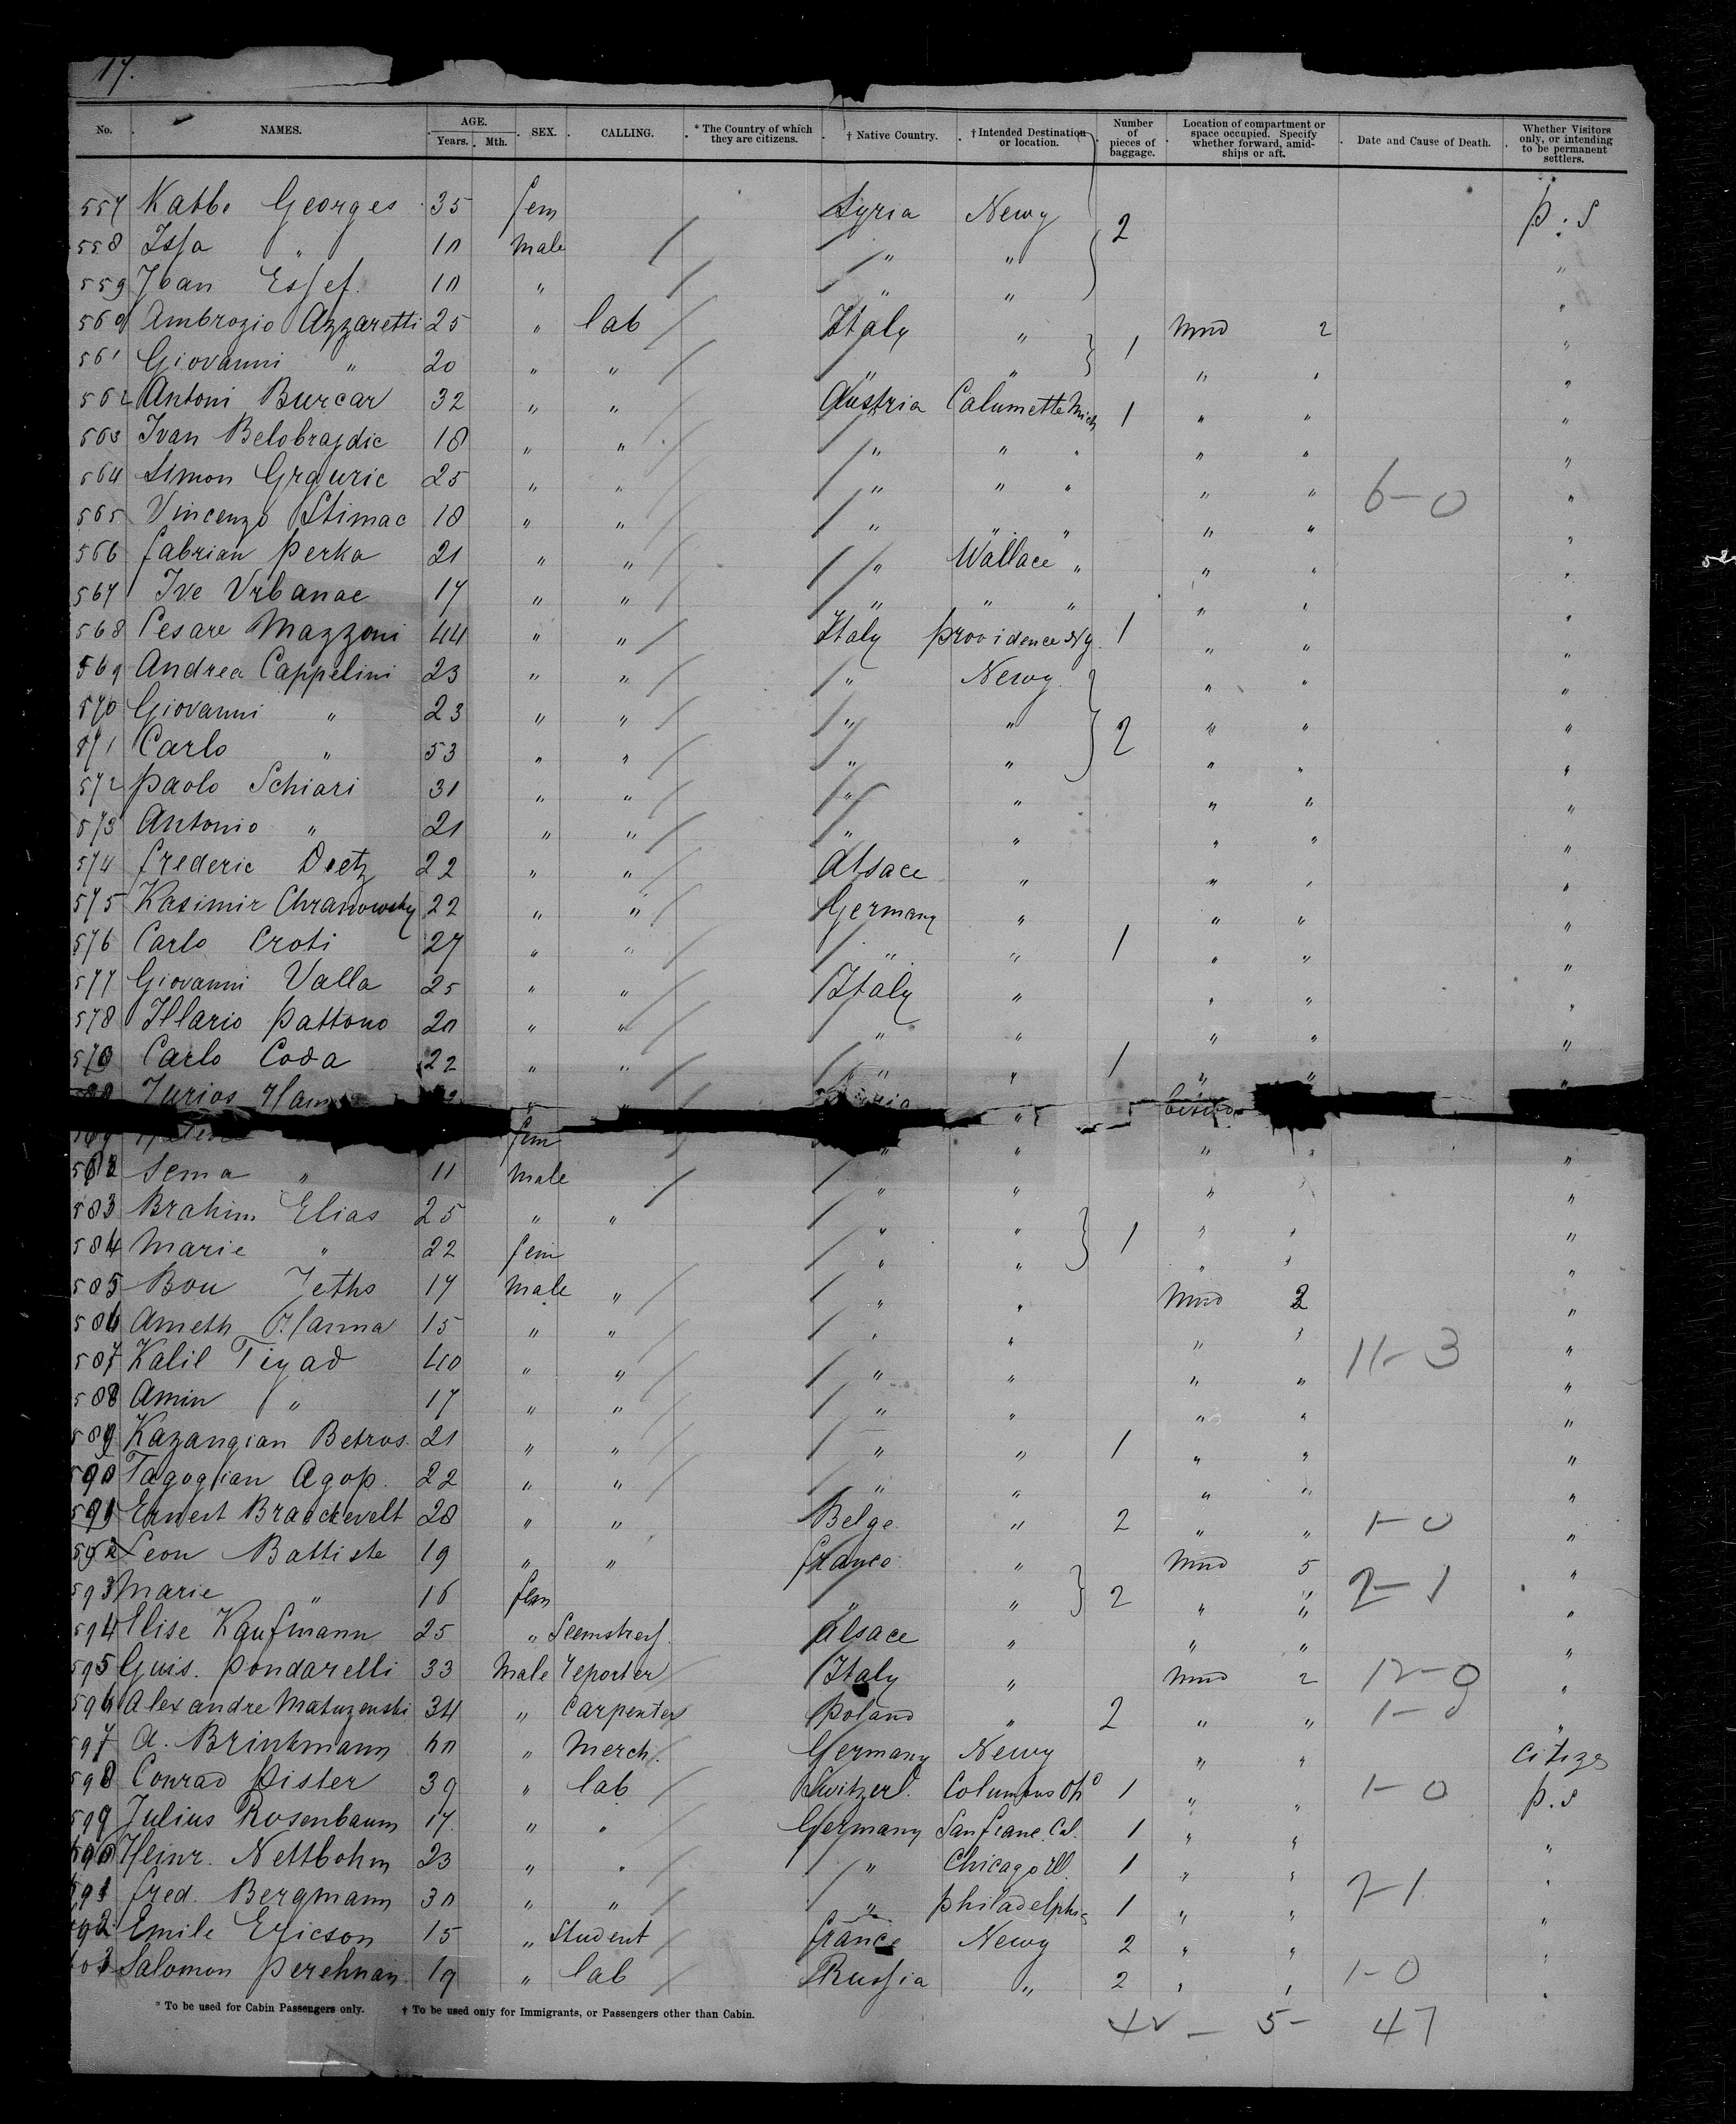 17.
No. NAMES. AGE. Years. Mth. SEX. CALLING. * The Country of which they are citizens. † Native Country. † Intended Destination or location. Number of pieces of baggage. Location of compartment or space occupied. Specify whether forward, amidships or aft. Date and Cause of Death. Whether Visitors only, or intending to be permanent settlers.
557 Kabbo Georges 35 fem Syria Newy 2 p.s
558 Issa " 10 Male / " " "
559 Essef 10 " / " " "
560 Ambrozio Azzaretti 25 " lab Italy " 1 Mmd 2 "
561 Giovanni " 20 " " / " " " " "
562 Antoni Burcar 32 " " Austria Calumette Mich 1 " " "
563 Ivan Belobrajdic 18 " " / " " " " " "
564 Simon Grguric 25 " " / " " " " " 6-0 "
565 Vincenzo Stimac 18 " " / " " " " " "
566 fabrian perka 21 " " / " Wallace " " " "
567 Ive Urbanac 17 " " / " " " " " "
568 Cesare Mazzoni 44 " " Italy providence Ny. 1 " " "
569 Andrea Cappelini 23 " " / " Newy " " "
570 Giovanni " 23 " " / " " 2 " " "
571 Carlo " 53 " " / " " " " "
572 paolo Schiari 31 " " / " " " " "
573 Antonio " 21 " " / " " " " "
574 frederic Dietz 22 " " Alsace " " " "
575 Kasimir Chranowsky 22 " " Germany " " " "
576 Carlo Croti 27 " " / " " 1 " " "
577 Giovanni Valla 25 " " Italy " " " "
578 Illario pattono 20 " " / " " " " "
579 Carlo Coda 22 " " / " " 1 " " "
Jurios " " "
fem " " " "
582 Sema " 11 Male / " " " "
583 Brahim Elias 25 " " / " " 1 " " "
584 Marie " 22 fem / " " " " "
585 Bou Jeths 17 Male " / " " Mmd 2 "
586 Ameth Hanna 15 " " / " " " " "
587 Kalil Tigad 40 " " / " " " " 11-3 "
588 Amin " 17 " " / " " " " "
589 Kazangian Betros 21 " " / " " 1 " " "
590 Tagogian Agop. 22 " " / " " " " "
591 Ernest Braeckevelt 28 " " Belge " 2 " " 1-0 "
592 Leon Battiste 19 " " france " Mmd 5 "
593 Marie " 16 fem " " 2 " " 2-1 "
594 Elise Kaufmann 25 " Seemstress Alsace " " " "
595 Guis. pondarelli 33 Male reporter Italy " Mmd 2 12-0 "
596 Alexandre Matuzenski 34 " Carpenter poland " 2 " " 1-0 "
597 A. Brinkmann " Merch. Germany Newy " " citizen
598 Conrad pister 39 " lab Switzerl. Columbus Oho 1 " " 1-0 p.s
599 Julius Rosenbaum 17 " " Germany San franc. Cal. 1 " " "
600 Heinr. Nettbohm 23 " " / " Chicago Ill 1 " " "
601 fred. Bergmann 30 " " / " philadelphia 1 " " 2-1 "
602 Emile Ericson 15 " Student france Newy 2 " " "
603 Salomon perehnan 19 " lab Russia " 2 " " 1-0 "
* To be used for Cabin Passengers only. † To be used only for Immigrants, or Passengers other than Cabin.
42 - 5 - 47